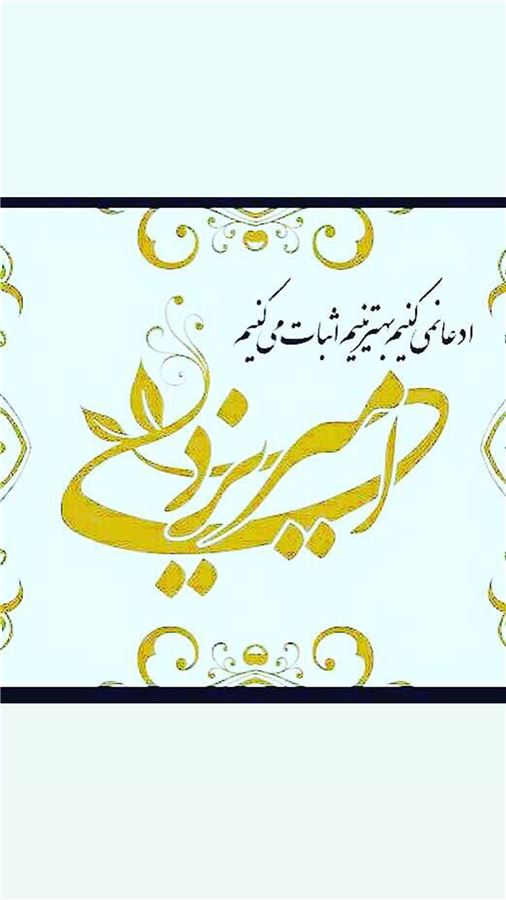 ادعا نمی کنیم بهترینیم اثبات می کنیم
امیر یزدی